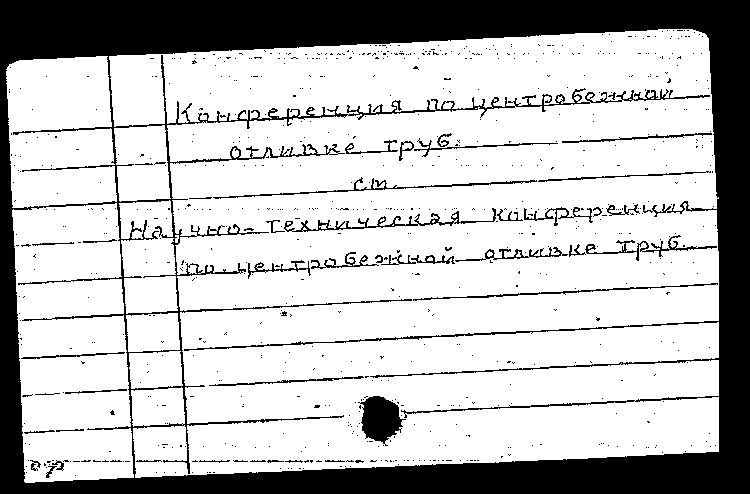 Конференция по центробежной
отливке труб.
см.
Научно-техническая конференция
по центробежной отливке труб